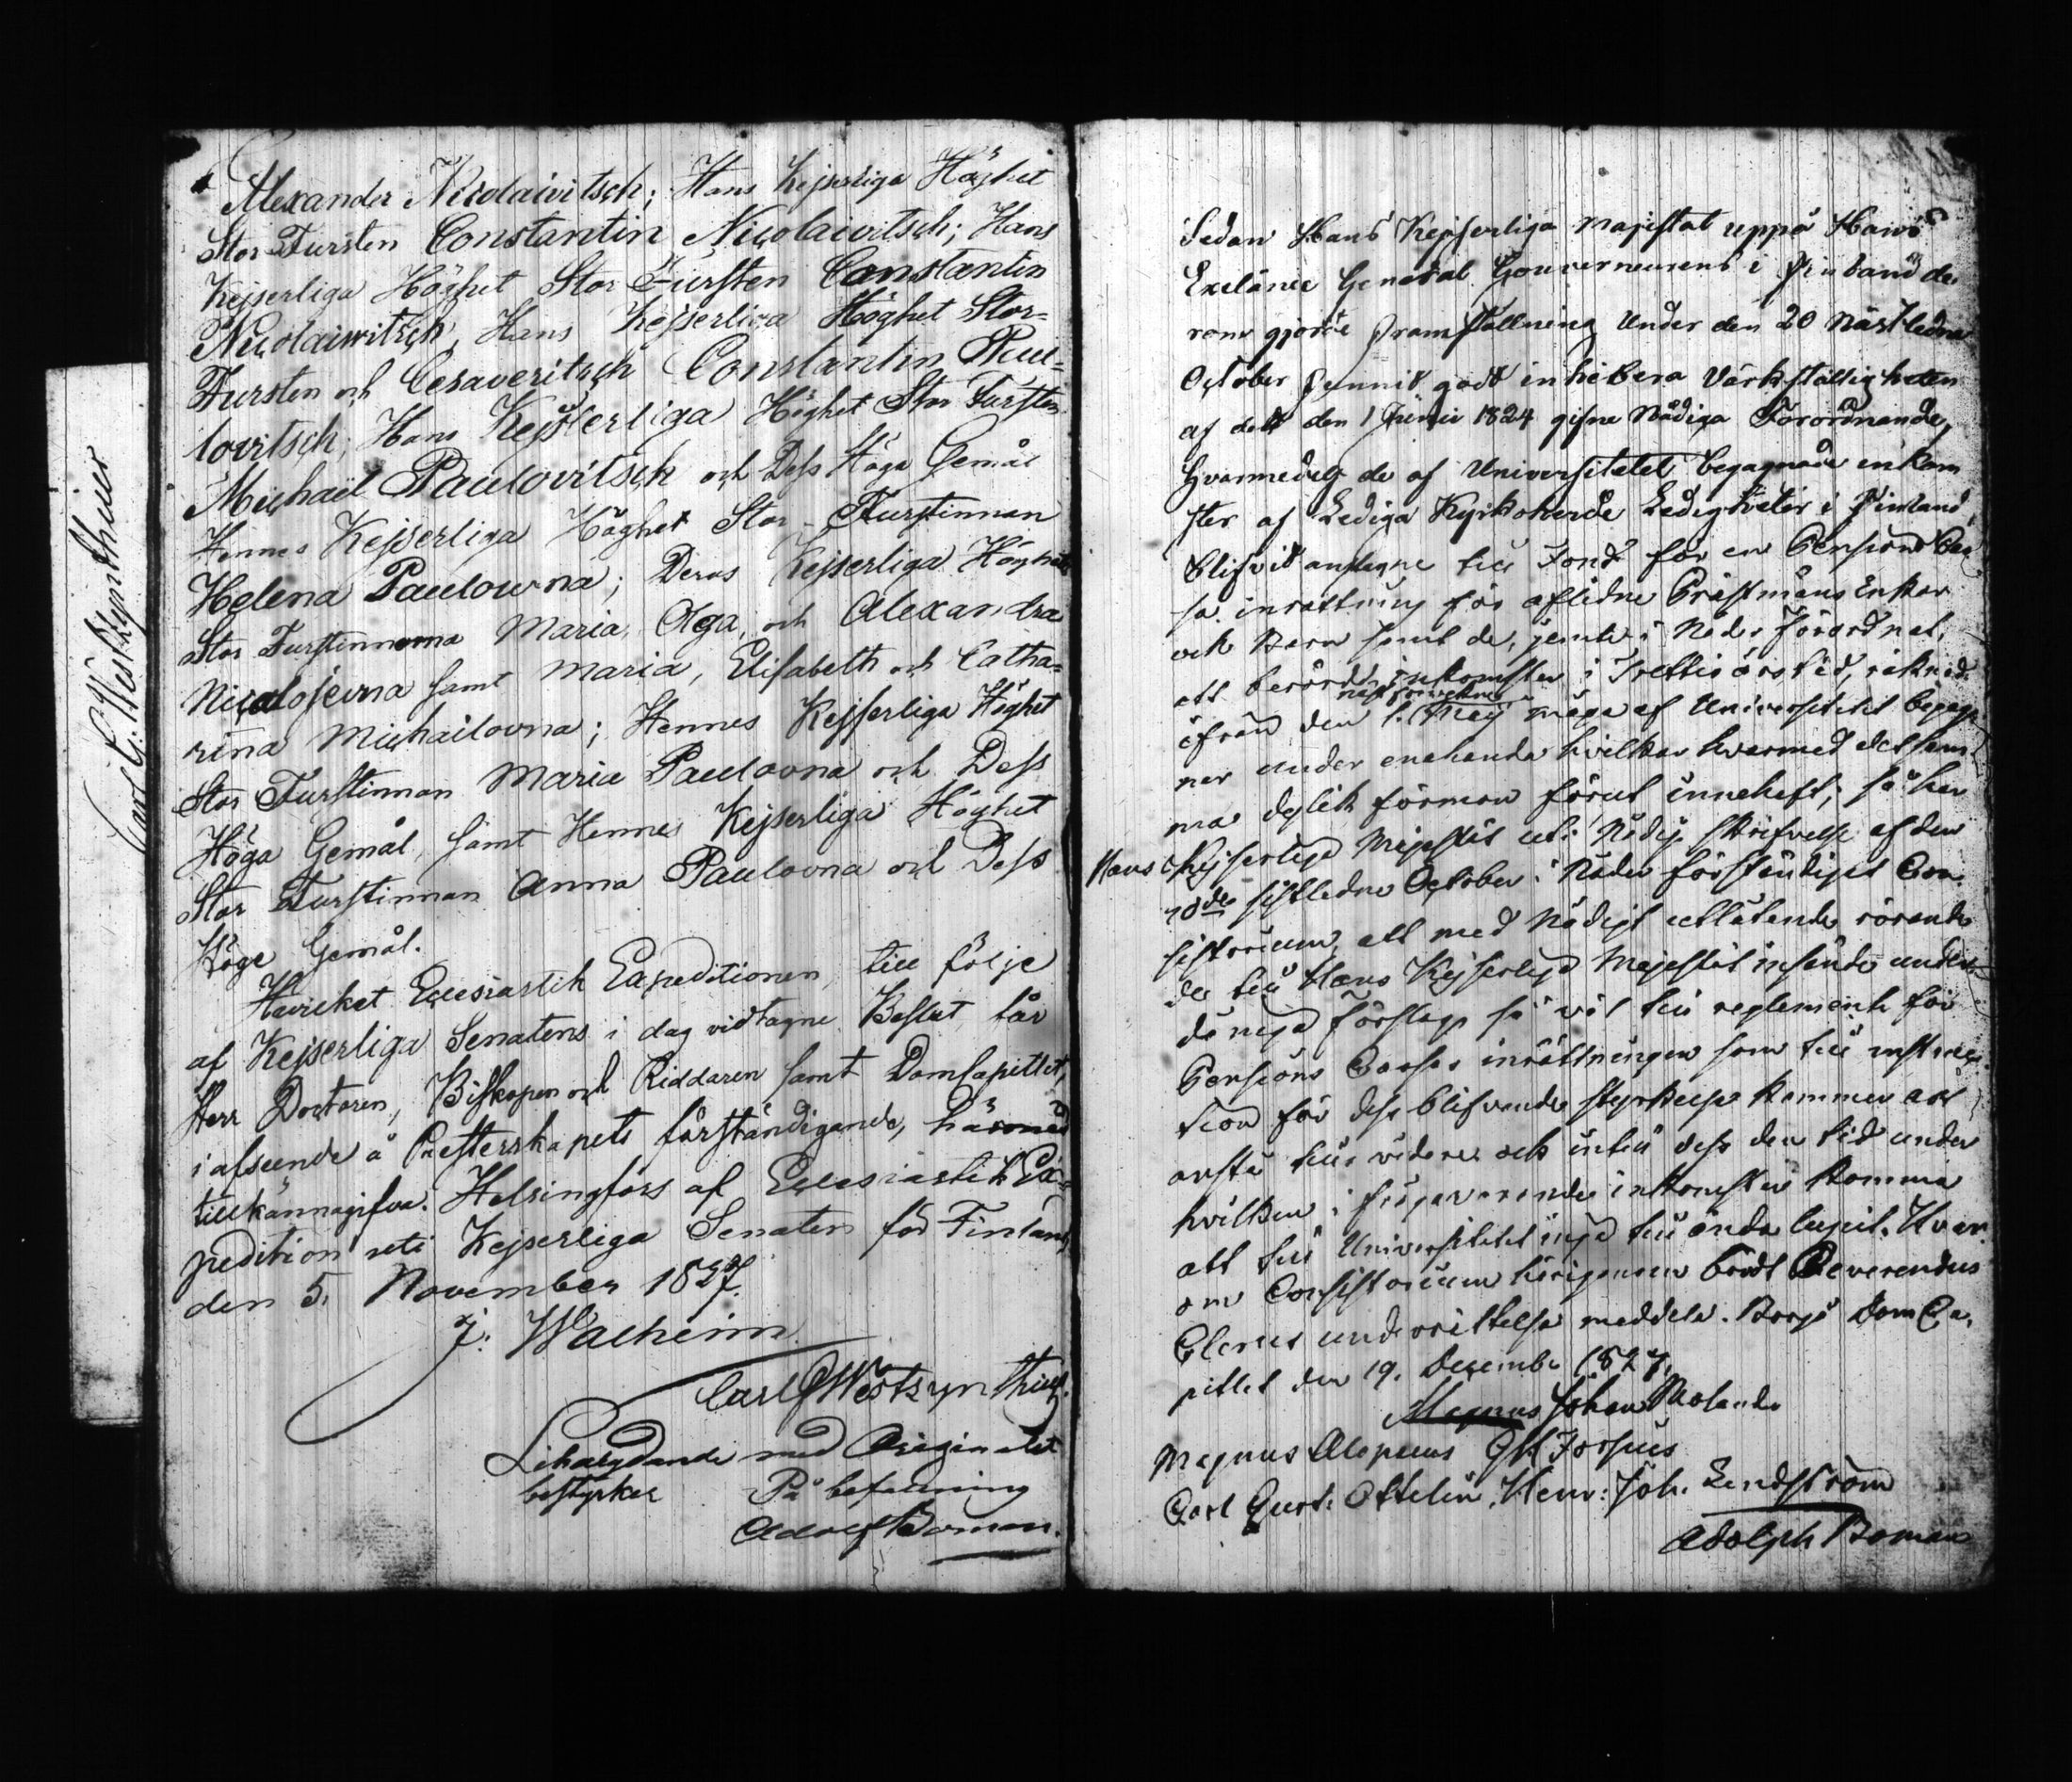 Alexander Nicolaivitsch; Hans Kejserliga Höghet
Stor Fursten Constantin Nicolaivitsch; Hans
Kejserliga Höghet Stor Fursten Constantin
Nicolaiwitsch, Hans Kejserliga Höghet Stor-
Fursten och Cesaveritsch Constantin Pau-
lovitsch; Hans Kejserliga Höghet Stor Fursten
Michaël Paulovitsch och Dess Höga Gemål
Hennes Kejserliga Höghet Stor-Furstinnan
Helena Paulowna; Deras Kejserliga Högheter
Stor Furstinnorna Maria, Olga, och Alexandra
Nicolajevna samt Maria, Elisabeth och Catha-
rina Michailovna; Hennes Kejserliga Höghet
Stor Furstinnan Maria Paulovna och Dess
Höga Gemål, samt Hennes Kejserliga Höghet
Stor Furstinnan Anna Paulovna och Dess
Höge Gemål.
Hvilket Ecclesiastik Expeditionen, till följe
af Kejserliga Senatens i dag vidtagne Beslut får
Herr Doctoren, Biskopen och Riddaren samt Domcapitlet,
i afseende å Presterskapets förständigande, härmed
tillkännagifva. Helsingfors af Ecclesiastik Ex-
pedition uti Kejserliga Senaten för Finland,
den 5. November 1827.
J. Walheim
Carl G Westzynthius.
Likalydande med Originalet
bestyrker På befallning
Adolf Boman.
Carl G. Westzynthius
Sedan Hans Kejserliga Majestät uppå Hans
Exelance General Gouverneurens i Finland de-
rom gjorde Framställning under den 20 Nästledne
October funnit godt inhibera Värkställigheten
af dett den 1 Junii 1824 gifne Nådiga Förordnande,
hvarmedelst de af Universitetet begagnade inkom
ster af Lediga Kyrkoherde Ledigheter i Finland
blifvit anslagne till Fond för en Pensions Cas
sa inrättning för aflidne Prästmäns Enkor
och Barn samt de, jemte i Nåder Förordnat,
att berörde inkomster i Trettio års tid, räknad
ifrån den 1. Maij måga af Universitetet begag
nas under enahanda vilkor hvarmed detsam
ma dylik förmon förut innehaft; så har
Hans Kejserliga Majestät uti Nådig skrifvelse af den
sistledne October i Nåder förständigat Con-
sistorium, att med Nådigt utlåtande rörande
de till Hans Kejserliga Majestät insände under
dåniga Förslag så väl till reglemente för
Pensions Cassa inrättningen som till instruc-
tion för dess blifvande styrelse kommer att
anstå tills vidare och intill dess den tid under
hvilken i fråga varande inkomster komma
att till Universitetet ingå till ända lupit. Hvar
om Consistorium härigenom bordt Reverendus
Clerus underrättelse meddela. Borgå Dom Ca-
pitlet den 19. December 1827.
Magnus Johan Molander
Magnus Alopæus G M Forsius
Carl Gust: Ottelin, Henr: Joh. Lindström
Adolph Boman